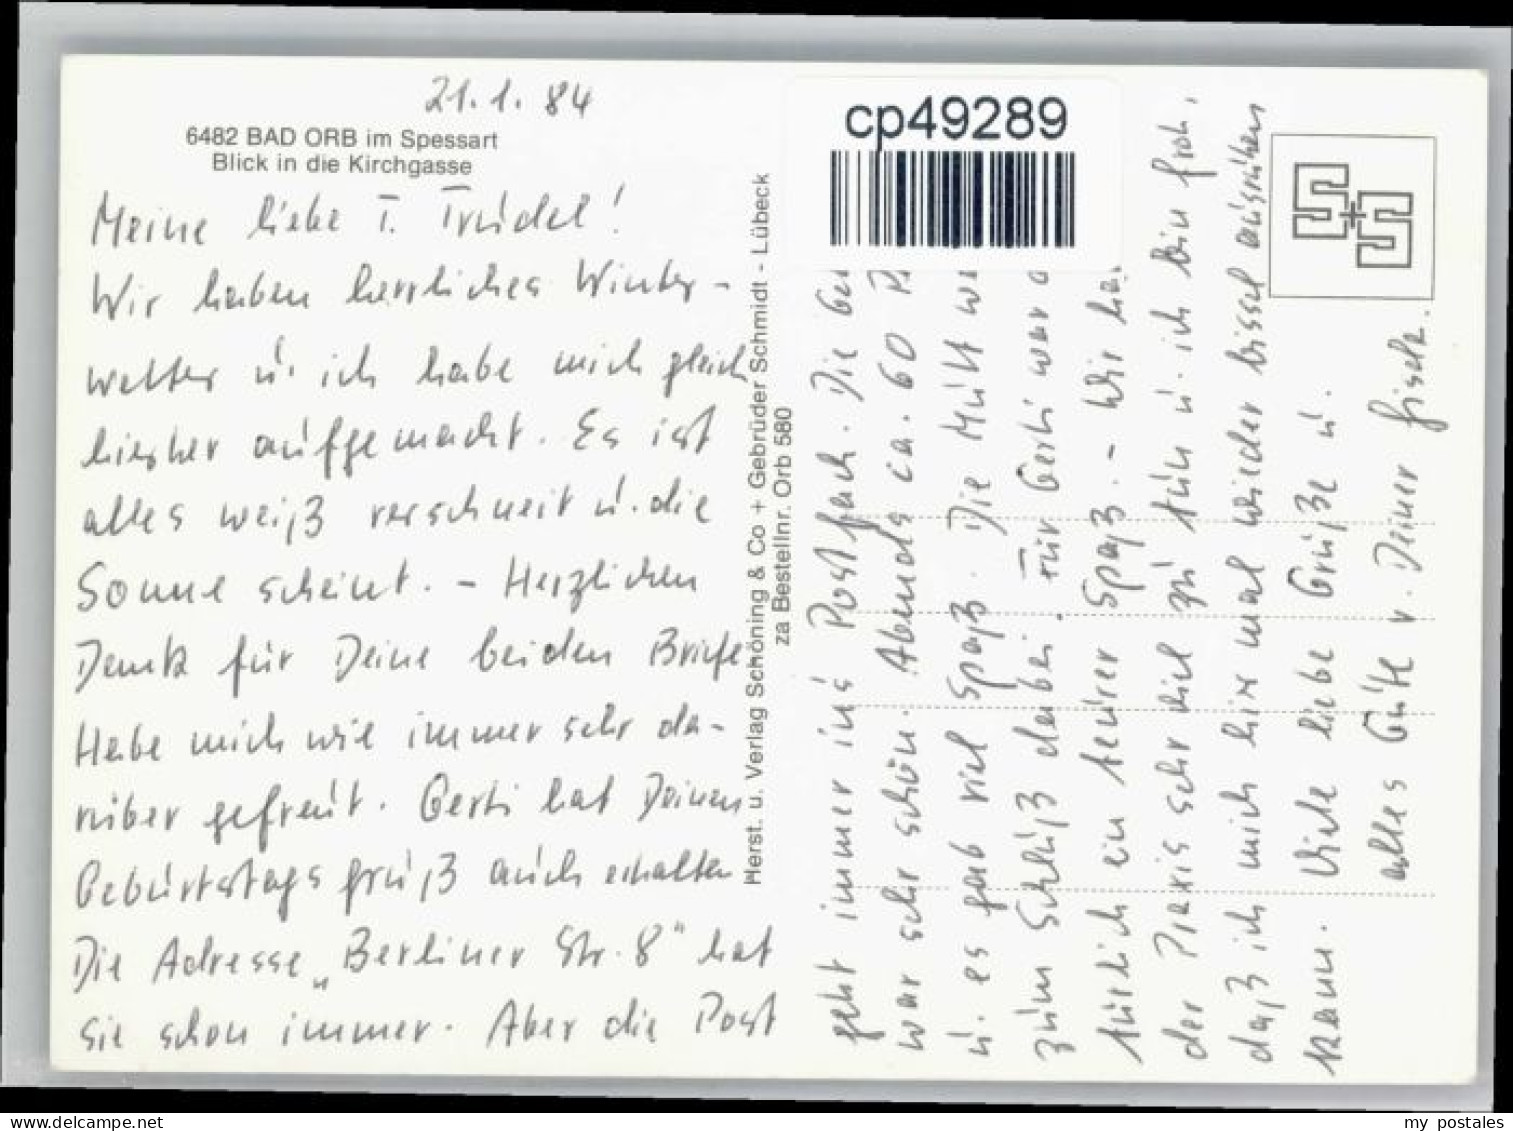 21.1.84
6482 BAD ORB im Spessart
Blick in die Kirchgasse
Meine liebe T. Trudel!
Wir haben herrliches Winter-
wetter u. ich habe mich gleich
hierher aufgemacht. Es ist
alles weiß verschneit u. die
Sonne scheint. – Herzlichen
Dank für Deine beiden Briefe
Habe mich wie immer sehr da-
rüber gefreut. Gerti hat Deinen
Geburtstagsgruß auch erhalten
Die Adresse „Berliner Str. 8" hat
sie schon immer. Aber die Post
Herst. u. Verlag Schöning & Co + Gebrüder Schmidt - Lübeck
za Bestellnr. Orb 580
cp49289
geht immer ins Postfach. Die
war sehr schön. Abends ca. 60
u. es gab viel Spaß. Die Mutti
zum Schluß dabei. Für Gerti war
türlich ein teurer Spaß. – Wir
der Praxis sehr viel zu tun u. ich bin froh,
daß ich mich hier mal wieder bissel ausruhen
kann. Viele liebe Grüße u.
alles Gute v. Deiner Gisela.
S+S
my postales